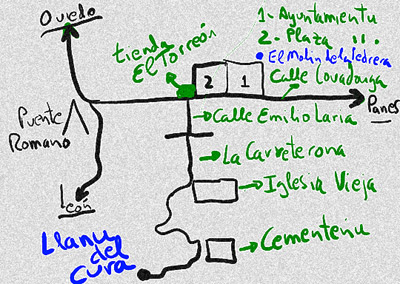 Oviedo
1- Ayuntamientu
2- Plaza " .
• El Molín de la Pedrera
tienda
El Torreón
2 1
Calle Covadonga
Panes
Puente
Romano
→Calle Emilio Laria
→La Carreterona
León
→Iglesia Vieja
Llanu
del
Cura
→Cementeriu